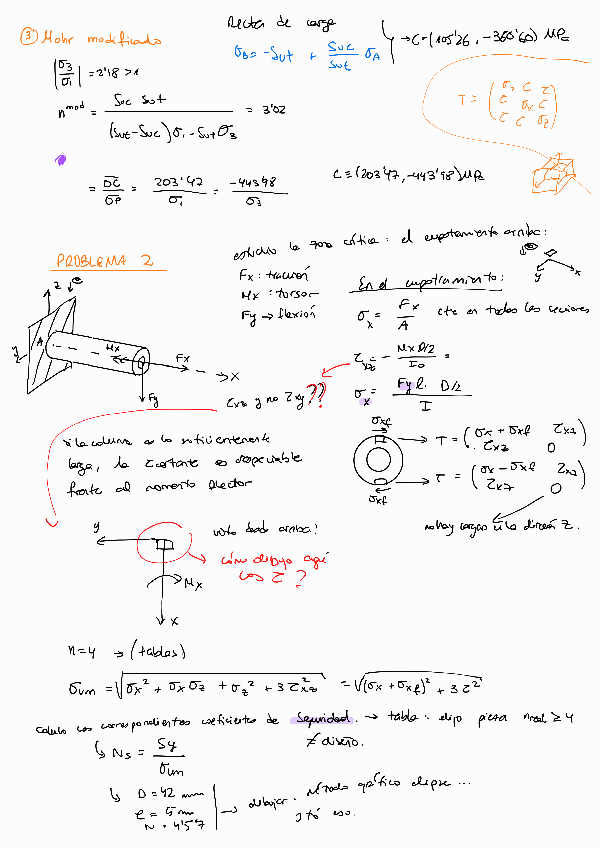 Rectas de carga
③ Mohr modificado
σB = -Sut + Suc/Sut σA
→ C = (105'26, -360'60) MPa
|σ3/σ1| = 2'18 > 1
n^mod = Suc Sut / (Sut-Suc)σ1 - Sut σ3 = 3'02
T = (σx τ τ
τ σy τ
τ τ σz)
= OC/OP = 203'47/σ1 = -443'98/σ3
C = (203'47, -443'98) MPa
PROBLEMA 2
estudio la zona crítica: el empotramiento arriba:
Fx: tracción
Mx: torsor
Fy → flexión
En el empotramiento:
σx = Fx/A cte en todas las secciones
τxz = - Mx D/2 / Io =
σx = Fy l · D/2 / I
τxz y no τxy??
z
y
A
Mx
Fx
x
Fy
x
y
si la columna es lo suficientemente
larga, la τ cortante es despreciable
frente al momento flector
σxf
T = (σx + σxf τxz
τxz 0)
T = (σx - σxf τxz
τxz 0)
σxf
no hay cargas en la dirección z.
visto desde arriba!
y
Mx
x
cómo dibujo aquí
los τ?
n=4 → (tablas)
σvm = √σx² + σxσz + σz² + 3τxz² = √(σx + σxf)² + 3τ²
calculo los correspondientes coeficientes de seguridad. → tabla: elijo pieza n real ≥ 4
≠ diseño.
↳ Ns = Sy/σvm
↳ D = 42 mm
e = 5 mm
N = 4'57
→ dibujar. método gráfico elipse ...
y tó eso.